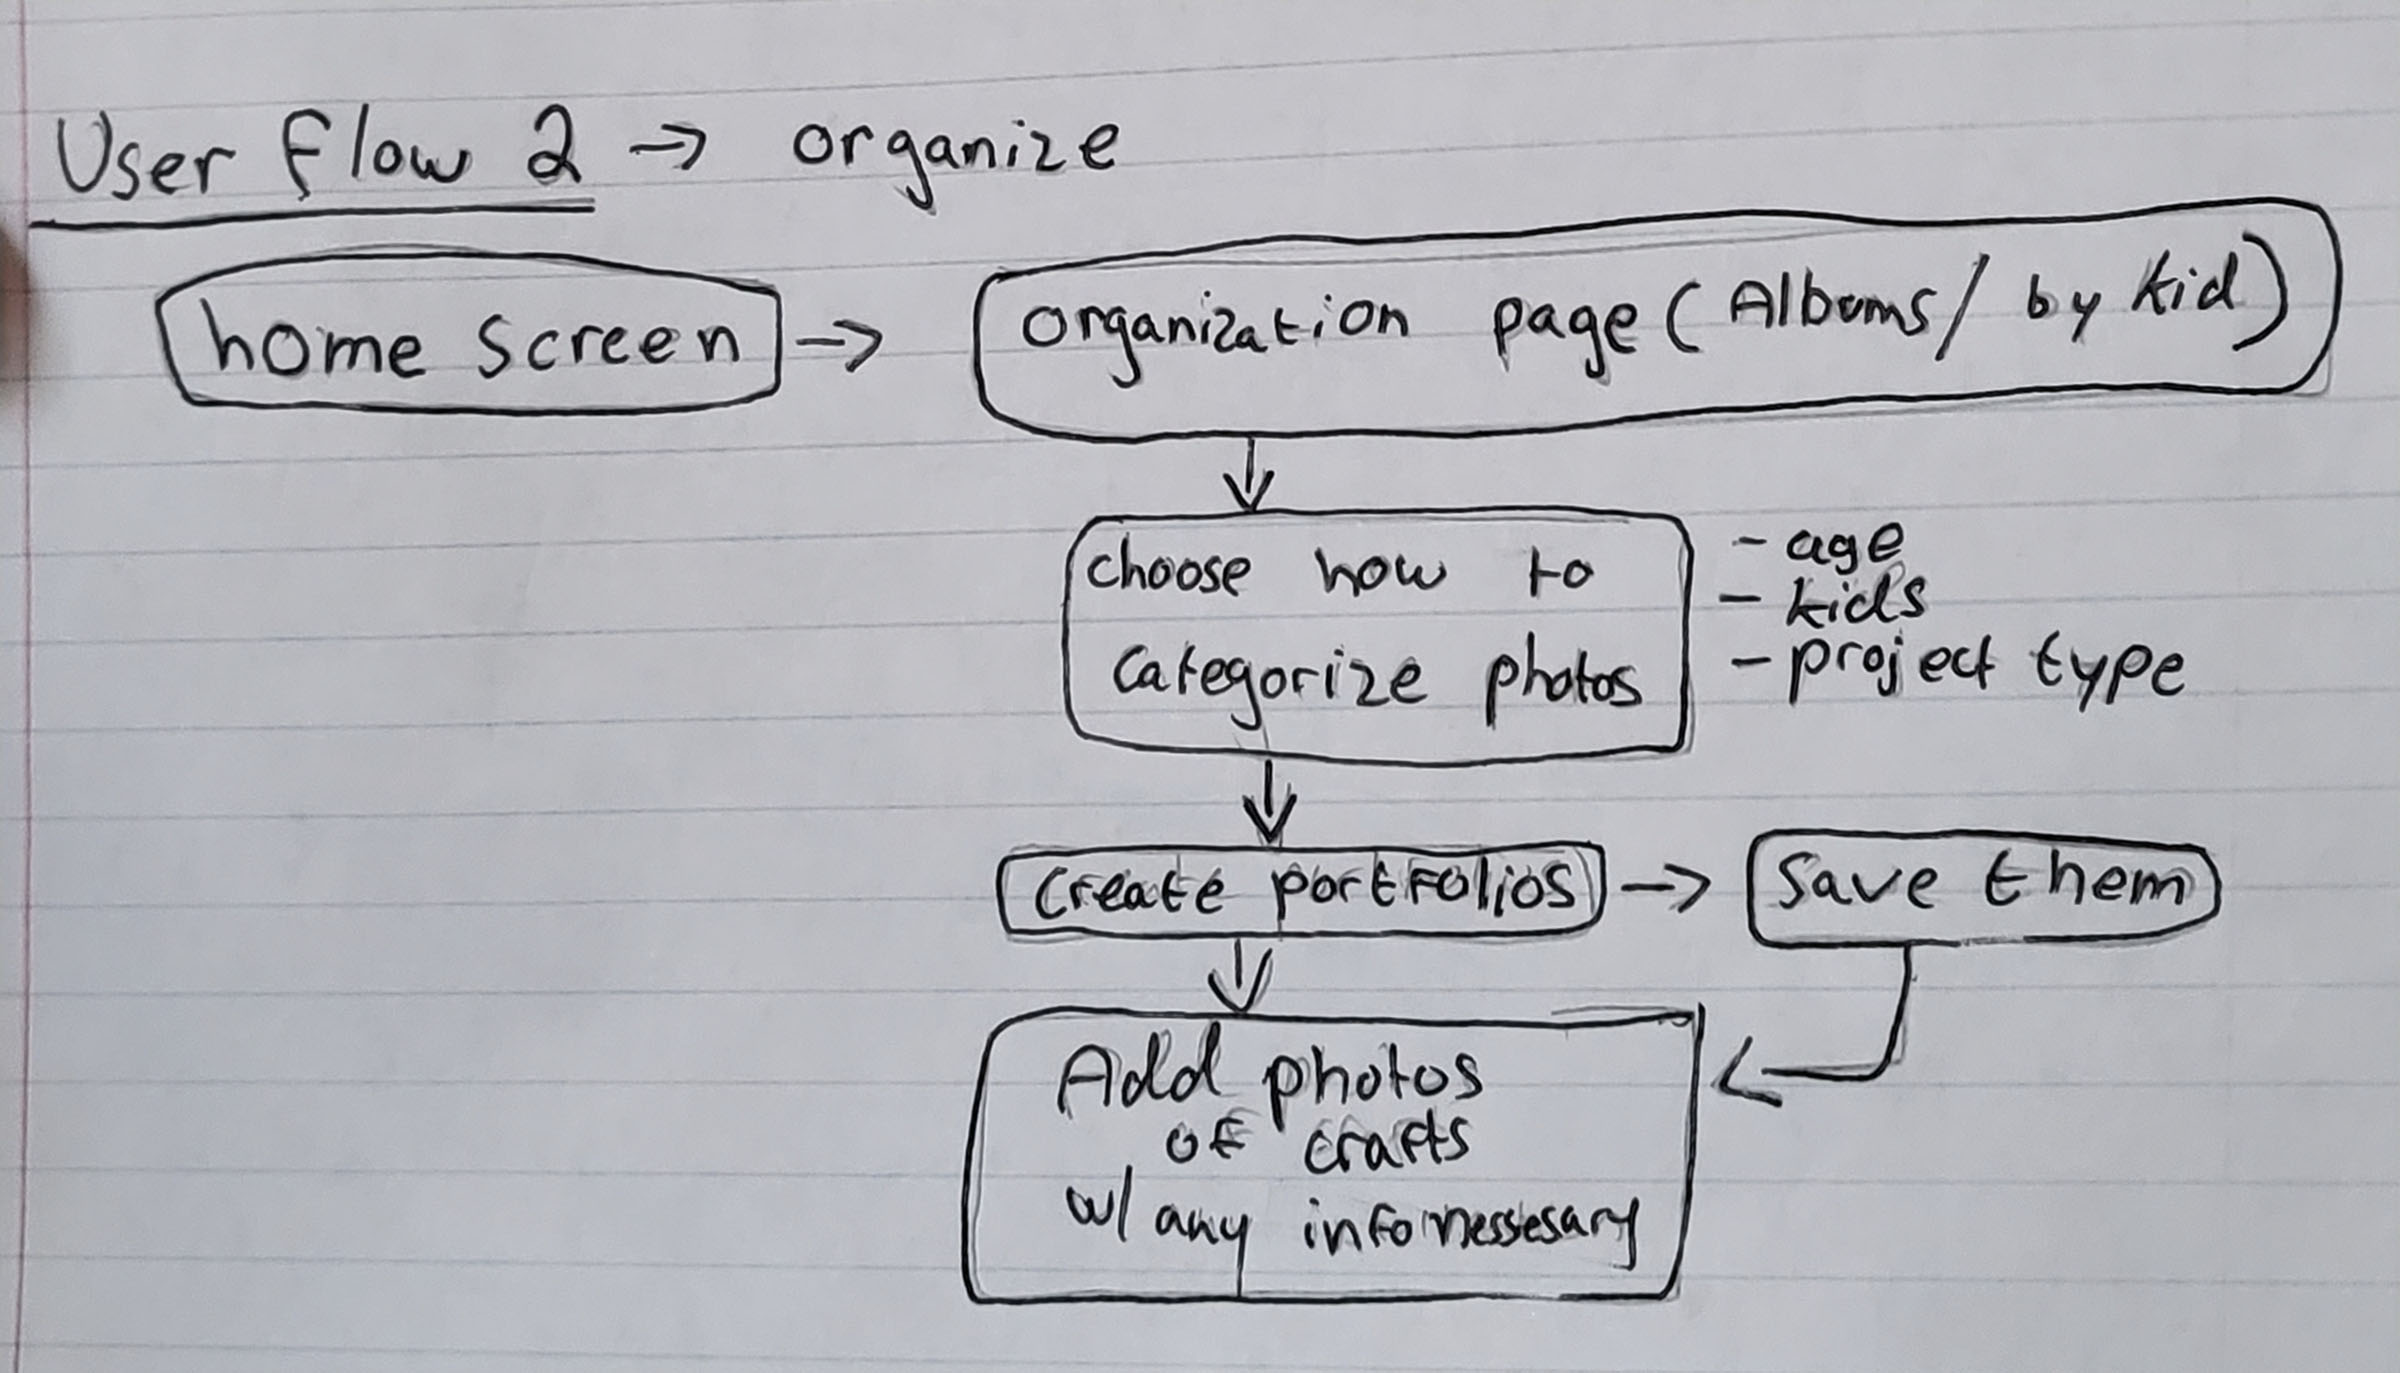 User Flow 2 → organize
home screen → organization page (Albums/ by kid)
choose how to
categorize photos
- age
- kids
- project type
create portfolios → save them
Add photos
of crafts
w/ any info nessesary